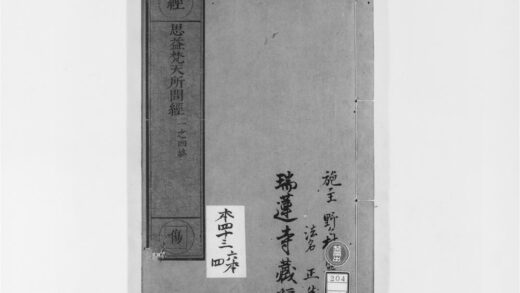 經
思益梵天所問經 一之四終
傷
本四十三 六本
四
施主 野村
法名 正
瑞蓮寺藏
204